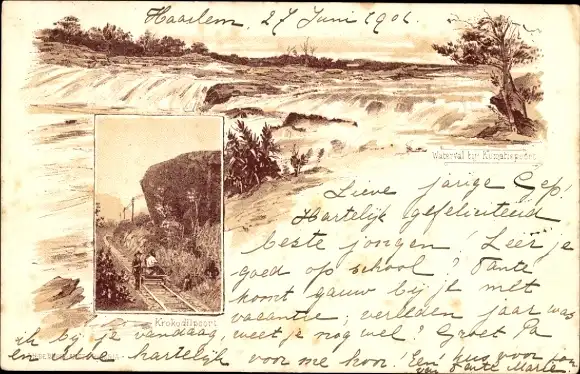 Haarlem, 27 Juni 1901.
Waterval bij Komatiepoort
Lieve jarige Gep!
Hartelijk gefeliciteerd
beste jongen! Leer je
goed op school? Tante
komt gauw bij je met
vacantie; verleden jaar was
Krokodilpoort
ik bij je vandaag, weet je nog wel? Groet Pa
en hartelijk voor me hoor! Een kus voor jou
van Tante Marie